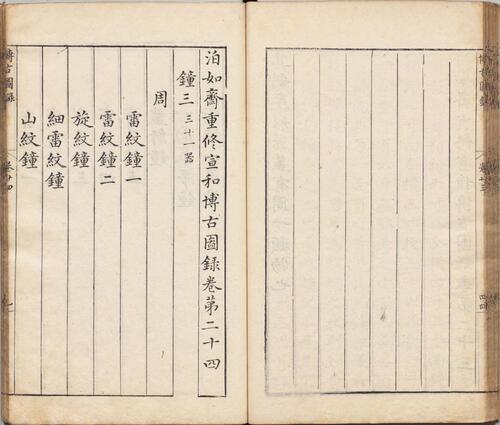 泊如齋重修宣和博古圖録卷第二十四
鐘三 三十一器
周
雷紋鐘一
雷紋鐘二
旋紋鐘
細雷紋鐘
山紋鐘
博古圖録
卷廿四